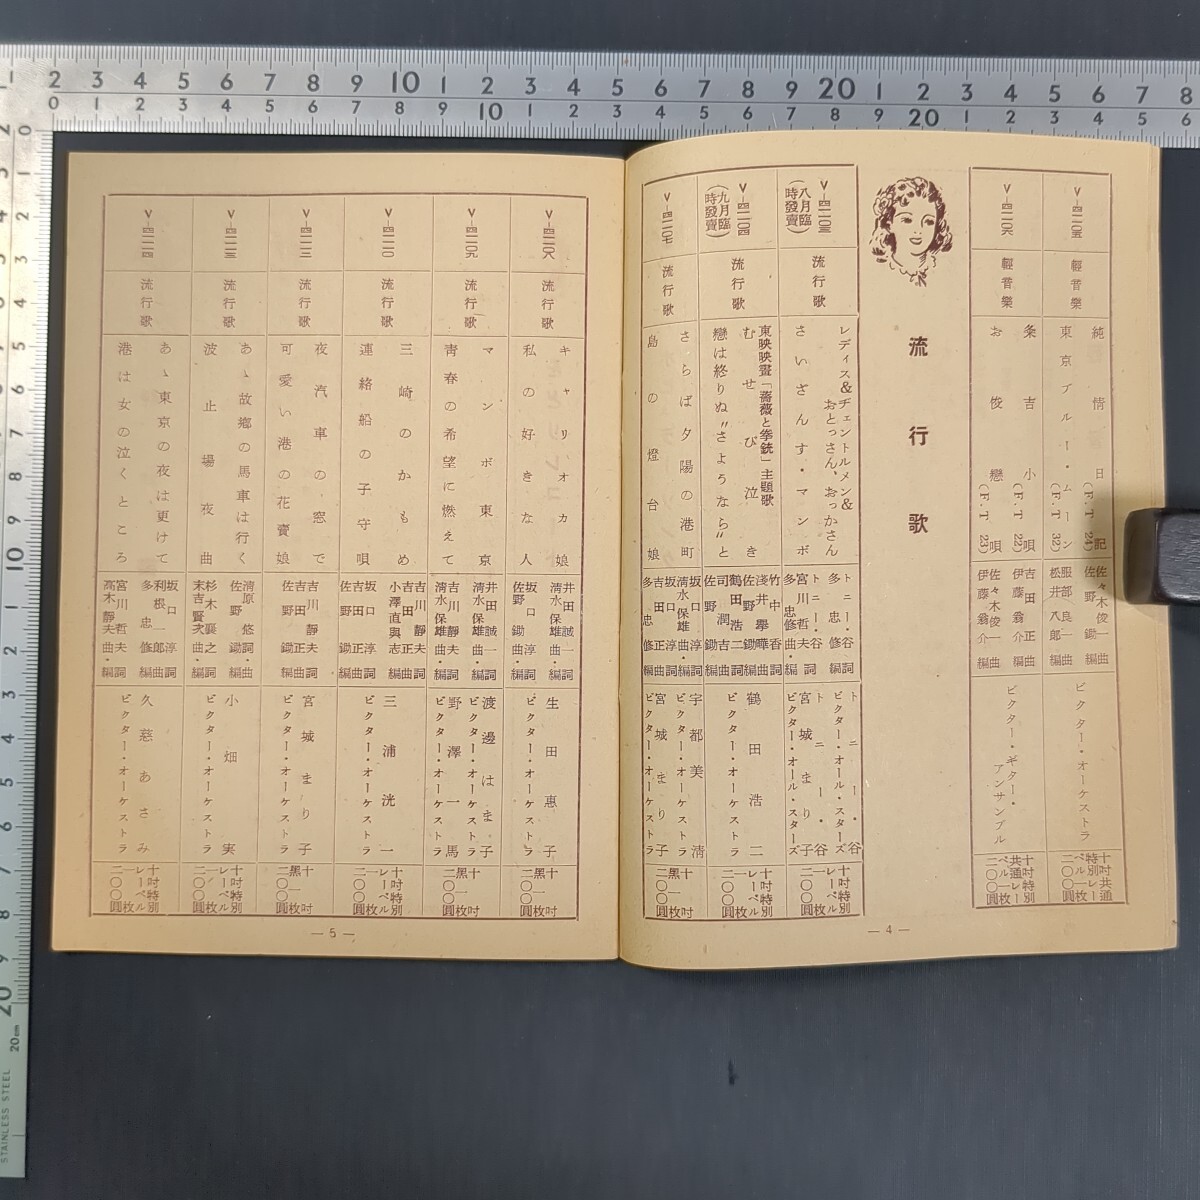 V—四一二〇五
輕音樂
純情日記
(F.T 24)
東京ブルー・ムーン
(F.T 32)
佐々木俊一曲
佐野鋤編
服部良一曲
松井八郎編
ビクター・オーケストラ
十吋共通
特別レー
ベル一枚
二〇〇圓
V—四一二〇六
輕音樂
粂吉小唄
(F.T 22)
お俊戀唄
(F.T 23)
吉田正曲
伊藤翁介編
佐々木俊一曲
伊藤翁介編
ビクター・ギター・
アンサンブル
十吋特別
共通レー
ベル一枚
二〇〇圓
流行歌
V—四一二〇三
(八月臨時發賣)
流行歌
レディス&ヂェントルメン&
おとっさん、おっかさん
さいざんす・マンボ
トニー・谷詞
多忠修編
トニー・谷詞
宮川哲夫詞
多忠修編
トニー・谷
ビクター・オール・スターズ
トニー・谷
宮城まり子
ビクター・オール・スターズ
十吋特別
レーベル
一枚
二〇〇圓
V—四一二〇四
(九月臨時發賣)
流行歌
東映映畫「薔薇と拳銃」主題歌
むせび泣き
戀は終りぬ"さようなら"と
竹中香詞
淺井擧曄曲
佐野鋤編
鶴田浩二詞
司潤吉曲
佐野鋤編
鶴田浩二
ビクター・オーケストラ
十吋特別
レーベル
一枚
二〇〇圓
V—四一二〇七
流行歌
さらば夕陽の港町
島の燈台娘
坂口淳詞
清水保雄曲・編
坂口淳詞
吉田正曲
多忠修編
宇都美清
ビクター・オーケストラ
宮城まり子
ビクター・オーケストラ
黑十吋
一枚
二〇〇圓
— 4 —
V—四一二〇八
流行歌
キャリオカ娘
私の好きな人
井田誠一詞
清水保雄曲・編
坂口淳詞
佐野鋤曲・編
生田惠子
ビクター・オーケストラ
黑十吋
一枚
二〇〇圓
V—四一二〇九
流行歌
マンボ東京
靑春の希望に燃えて
井田誠一詞
清水保雄曲・編
吉川靜夫詞
清水保雄曲・編
渡邊はま子
ビクター・オーケストラ
野澤一馬
ビクター・オーケストラ
黑十吋
一枚
二〇〇圓
V—四一二一〇
流行歌
三崎のかもめ
連絡船の子守唄
吉川靜夫詞
吉田正曲
小澤直與志編
坂口淳詞
吉田正曲
佐野鋤編
三浦洸一
ビクター・オーケストラ
十吋特別
レーベル
一枚
二〇〇圓
V—四一二一二
流行歌
夜汽車の窓で
可愛い港の花賣娘
吉川靜夫詞
吉田正曲
佐野鋤編
宮城まり子
ビクター・オーケストラ
黑十吋
一枚
二〇〇圓
V—四一二一三
流行歌
あゝ故鄕の馬車は行く
波止場夜曲
清原悠詞
佐野鋤曲・編
杉本襄之詞
末吉賢次曲・編
小畑実
ビクター・オーケストラ
十吋特別
レーベル
一枚
二〇〇圓
V—四一二一四
流行歌
あゝ東京の夜は更けて
港は女の泣くところ
坂口淳詞
利根一郎曲
多忠修編
宮川哲夫詞
高木靜夫曲・編
久慈あさみ
ビクター・オーケストラ
十吋特別
レーベル
一枚
二〇〇圓
— 5 —
STAINLESS STEEL
20cm